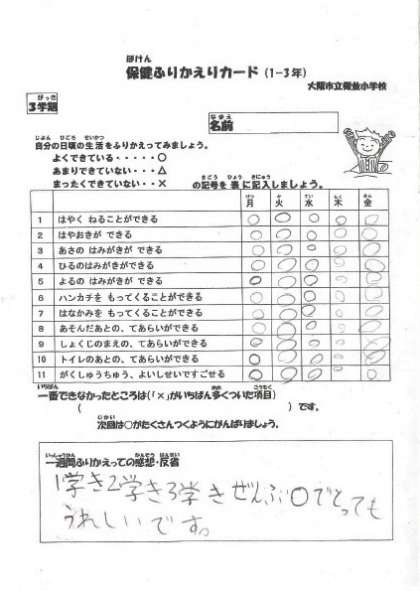 ほけん
保健ふりかえりカード (1-3年)
大阪市立 小学校
がっき
3学期
なまえ
名前
じぶん ひごろ せいかつ
自分の日頃の生活をふりかえってみましょう。
よくできている・・・・・○
あまりできていない・・・△
まったくできていない・・×
きごう ひょう きにゅう
の記号を 表に記入しましょう。
げつ か すい もく きん
月 火 水 木 金
1 はやく ねることができる ○ ○ ○ ○ ○
2 はやおきが できる ○ ○ ○ ○ ○
3 あさの はみがきが できる ○ ○ ○ ○ ○
4 ひるのはみがきが できる ○ ○ ○ ○ ○
5 よるの はみがきが できる ○ ○ ○ ○ ○
6 ハンカチを もってくることができる ○ ○ ○ ○ ○
7 はなかみを もってくることができる ○ ○ ○ ○ ○
8 あそんだあとの、てあらいができる ○ ○ ○ ○ ○
9 しょくじのまえの、てあらいができる ○ ○ ○ ○ ○
10 トイレのあとの、てあらいができる ○ ○ ○ ○ ○
11 がくしゅうちゅう、よいしせいですごせる ○ ○ ○ ○ ○
いちばん
一番できなかったところは(「×」がいちばん多くついた項目)
( )です。
じかい
次回は○がたくさんつくようにがんばりましょう。
いっしゅうかん かんそう はんせい
一週間ふりかえっての感想・反省
1学き2学き3学きぜんぶ○でとっても
うれしいです。